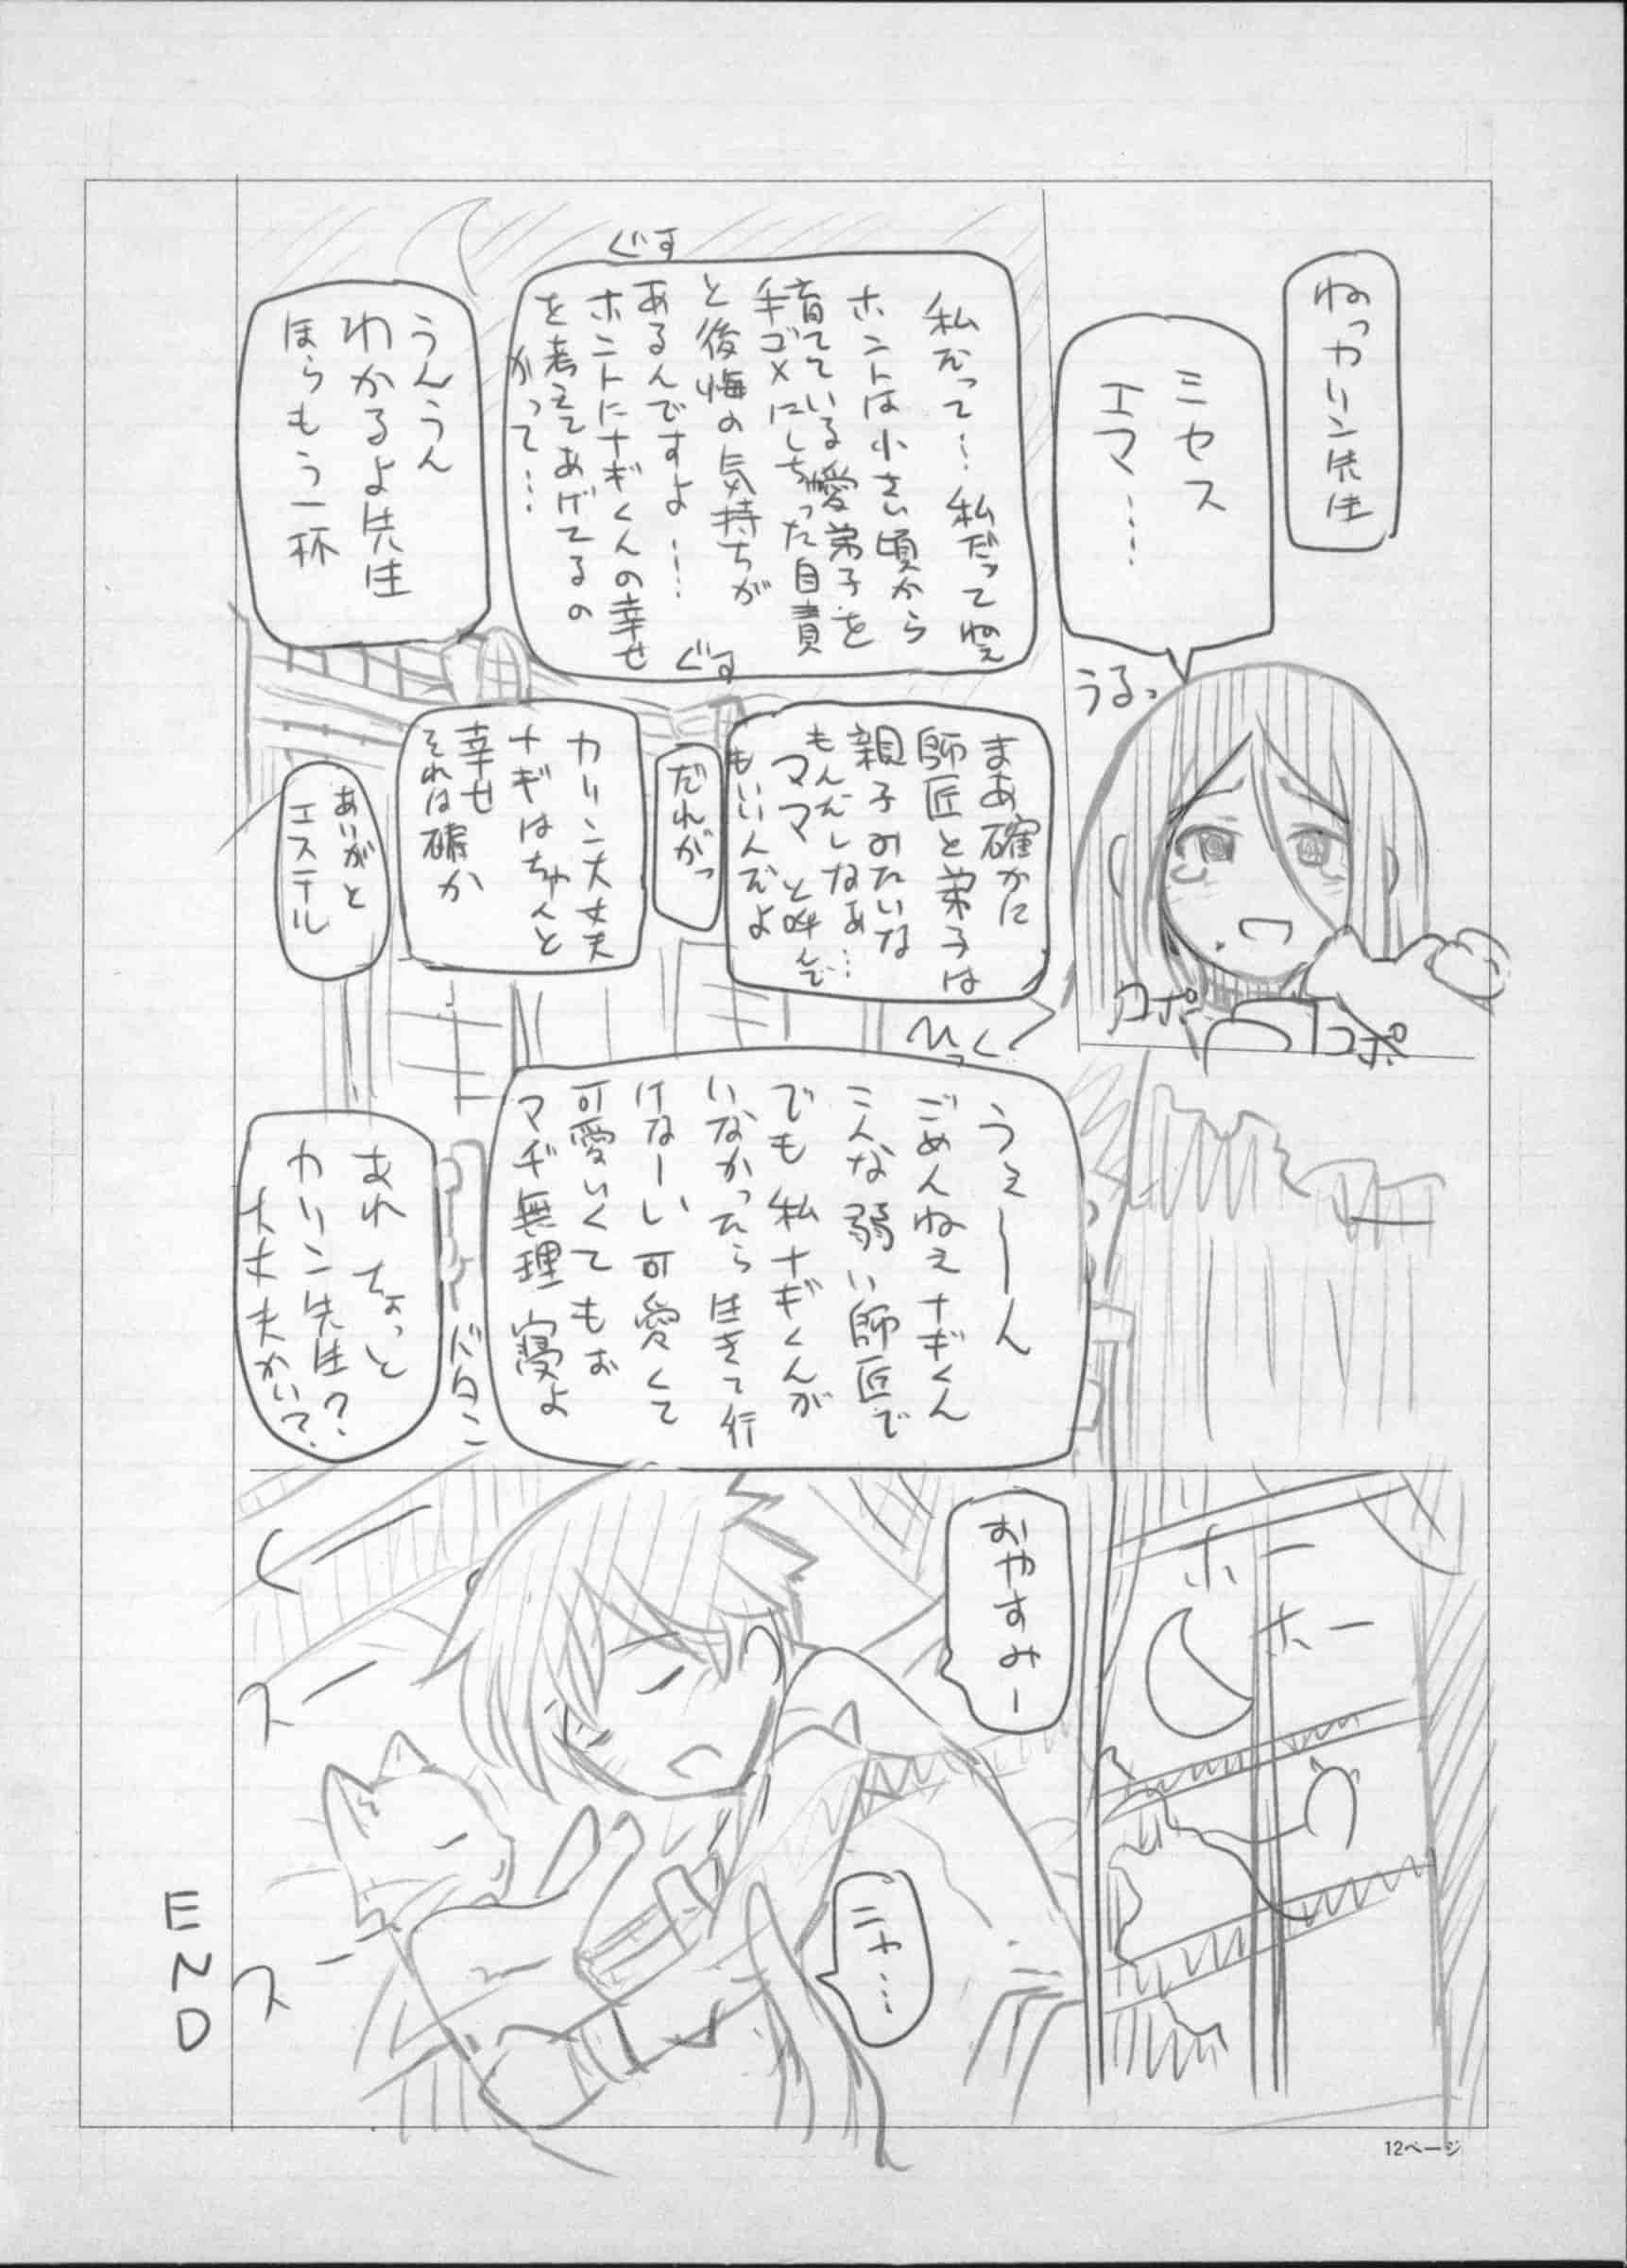 ねっカリン先生
ミセス
エマ……
うるっ
コポ
コポ
私だって…私だってねぇ
ホントは小さい頃から
育てている愛弟子を
手ゴメにしちゃった自責
と後悔の気持ちが
あるんですよ……
ホントにナギくんの幸せ
を考えてあげてるの
かって…
ぐす
ぐす
うんうん
わかるよ先生
ほらもう一杯
まあ確かに
師匠と弟子は
親子みたいな
もんだしなぁ…
ママと呼んで
もいいんだよ
だれがっ
カリン大丈夫
ナギはちゃんと
幸せ
それは確か
あいがと
エステル
ひっく
うえーーん
ごめんねぇナギくん
こんな弱い師匠で
でも私ナギくんが
いなかったら生きて行
けなーい可愛くて
可愛いくてもお
マヂ無理寝よ
バタン
あれちょっと
カリン先生?
大丈夫かい?
ホー
ホー
おやすみー
ニャ…
くー
スー
スー
END
12ページ